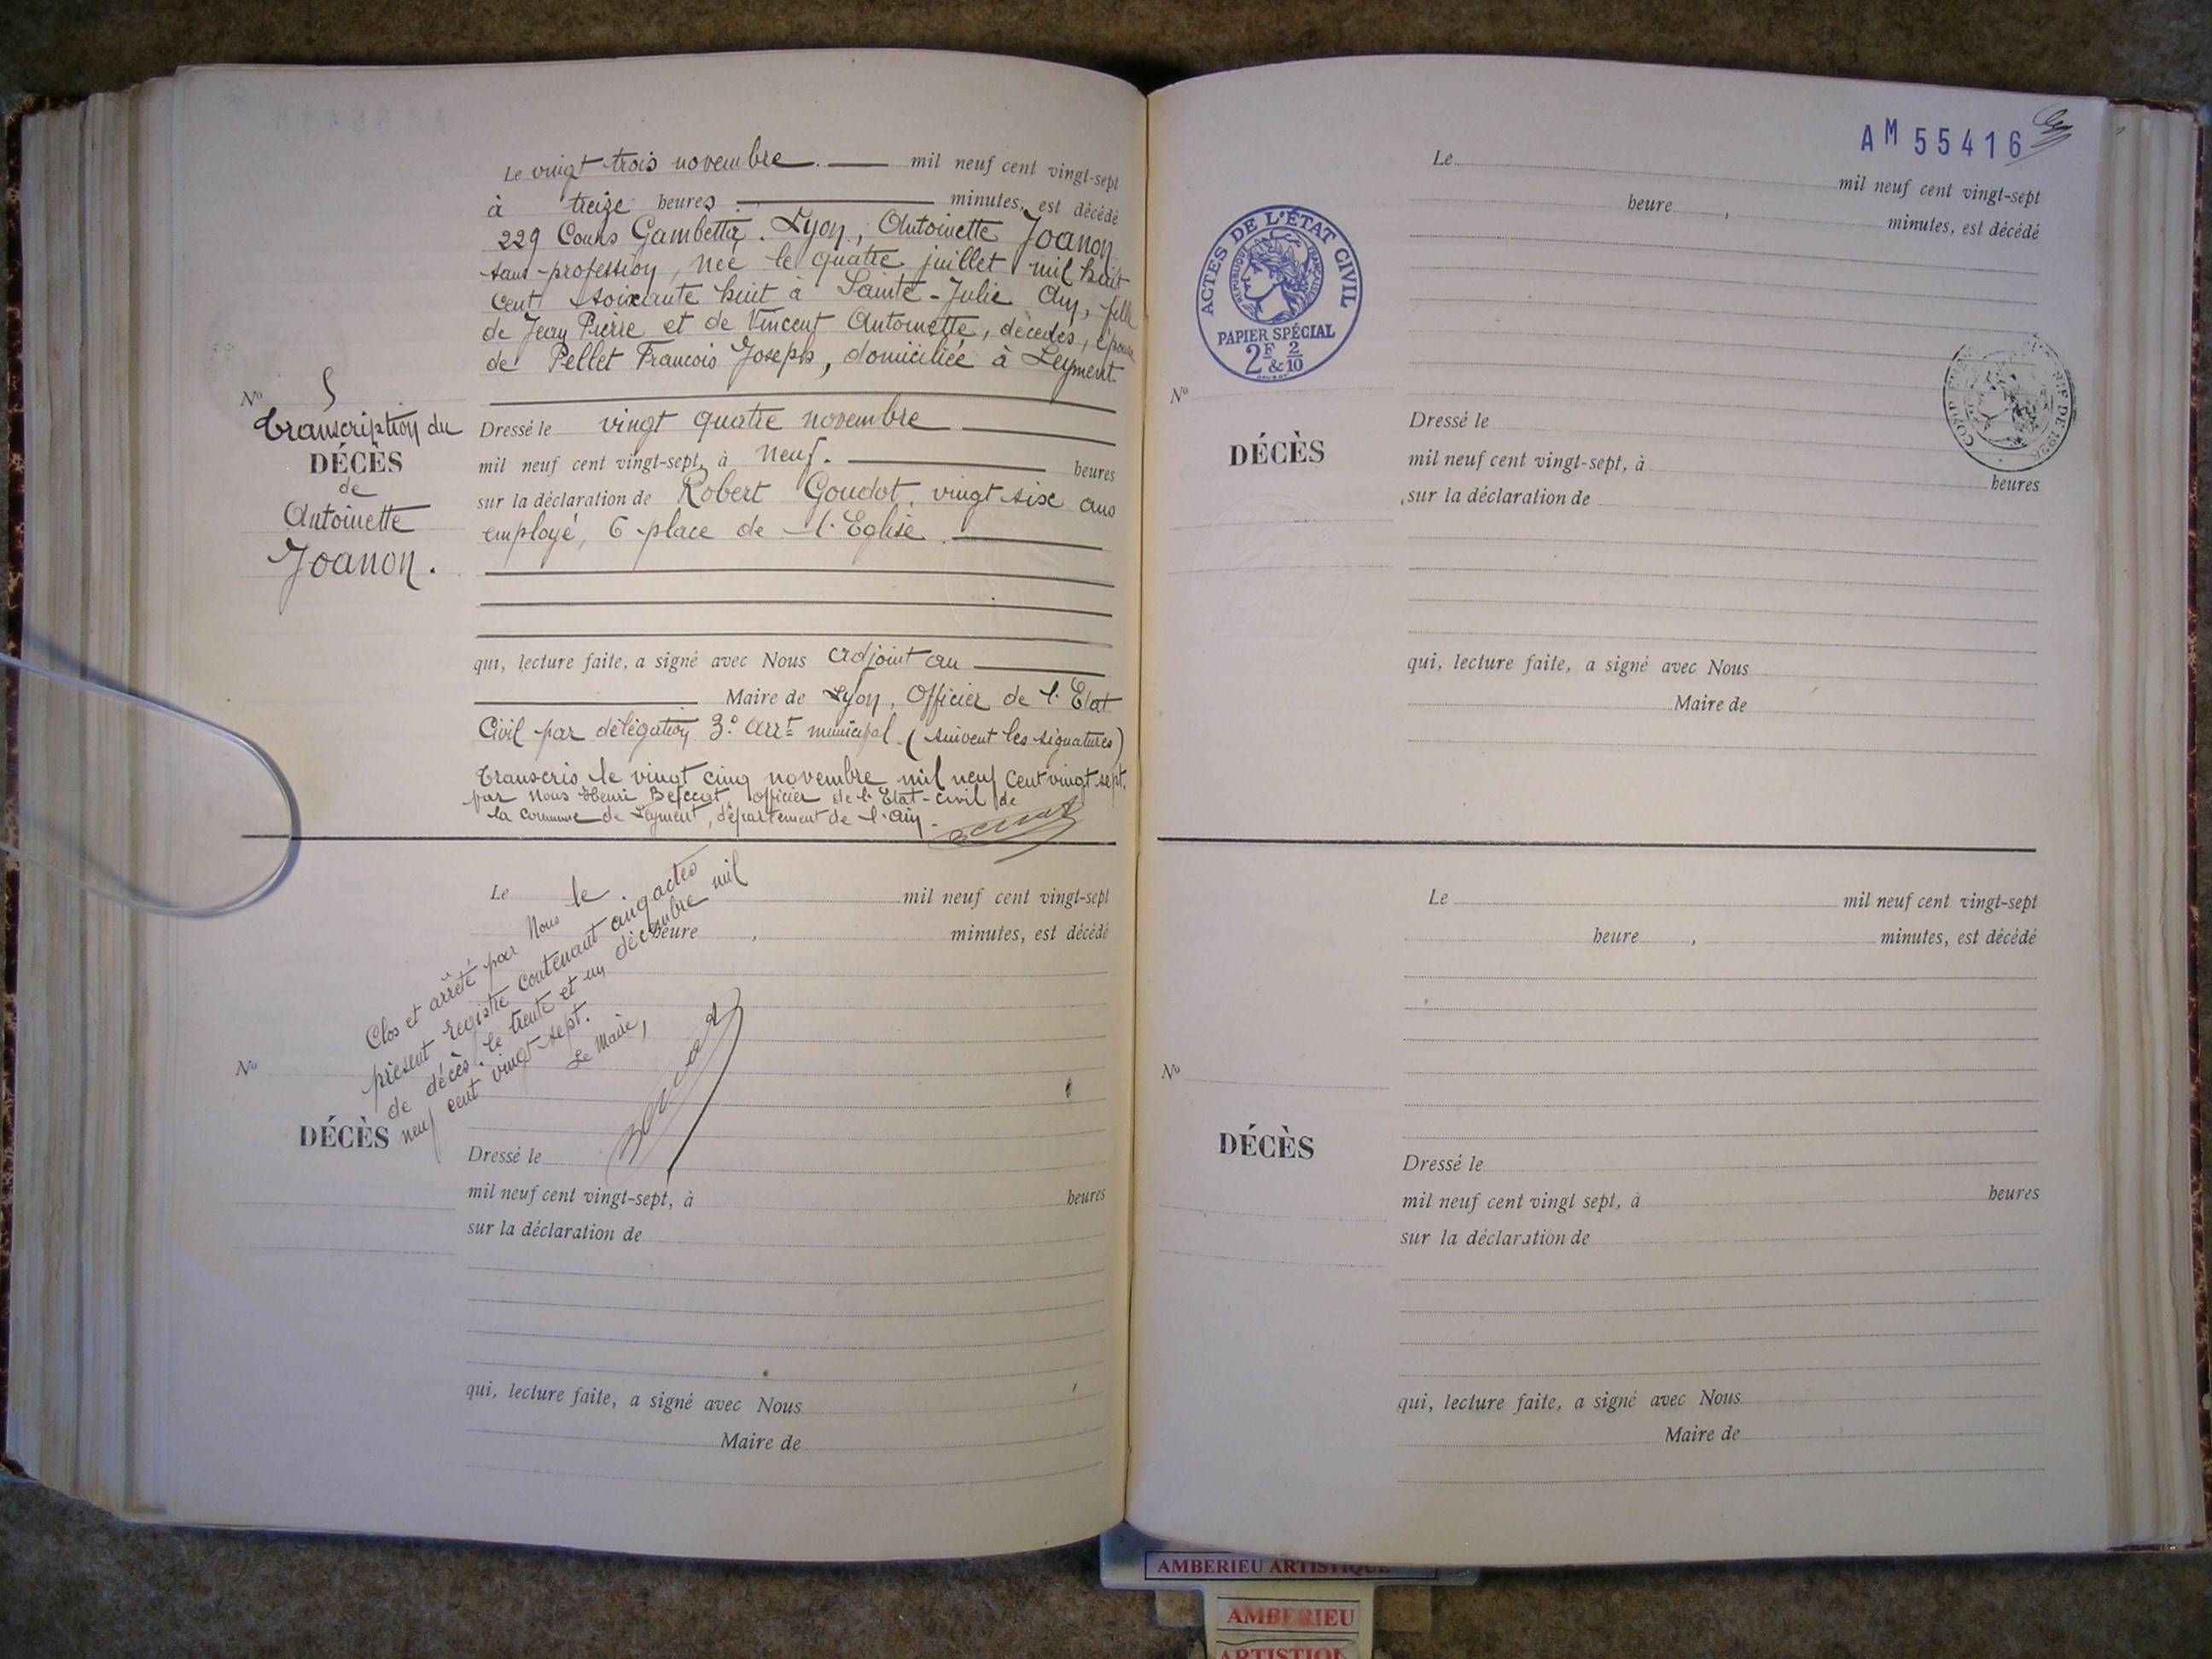 Le vingt trois novembre. mil neuf cent vingt-sept
à treize heures , minutes, est décédé
229 Cours Gambetta. Lyon, Antoinette Joanon
sans profession, née le quatre juillet mil huit
cent soixante huit à Sainte-Julie Ain, fille
de Jean Pierre et de Vincent Antoinette, décédés, épouse
de Pellet Francois Joseph, domiciliée à Leyment.
No 5
Transcription du
DÉCÈS
de
Antoinette
Joanon.
Dressé le vingt quatre novembre
mil neuf cent vingt-sept, à neuf. heures
sur la déclaration de Robert Goudot, vingt six ans
employé, 6 place de l'Eglise.
qui, lecture faite, a signé avec Nous adjoint au
Maire de Lyon, Officier de l'Etat
Civil par délégation 3e arrt municipal (suivent les signatures)
Transcris le vingt cinq novembre mil neuf cent vingt sept.
par Nous Henri officier de l'Etat-civil de
la commune de Leyment, département de l'Ain.
Le mil neuf cent vingt-sept
heure , minutes, est décédé
Clos et arrêté par Nous le
présent registre contenant cinq actes
de décès. le trente et un décembre mil
neuf cent vingt-sept.
Le Maire,
No
DÉCÈS
Dressé le
mil neuf cent vingt-sept, à heures
sur la déclaration de
qui, lecture faite, a signé avec Nous
Maire de
AM 55416
Le mil neuf cent vingt-sept
heure , minutes, est décédé
ACTES DE L'ÉTAT CIVIL
RÉPUBLIQUE FRANÇAISE
PAPIER SPÉCIAL
2F & 2/10
No
DÉCÈS
Dressé le
mil neuf cent vingt-sept, à heures
sur la déclaration de
DE 1926
qui, lecture faite, a signé avec Nous
Maire de
Le mil neuf cent vingt-sept
heure , minutes, est décédé
No
DÉCÈS
Dressé le
mil neuf cent vingt sept, à heures
sur la déclaration de
qui, lecture faite, a signé avec Nous
Maire de
AMBERIEU ARTISTIQUE
AMBERIEU
ARTISTIQU